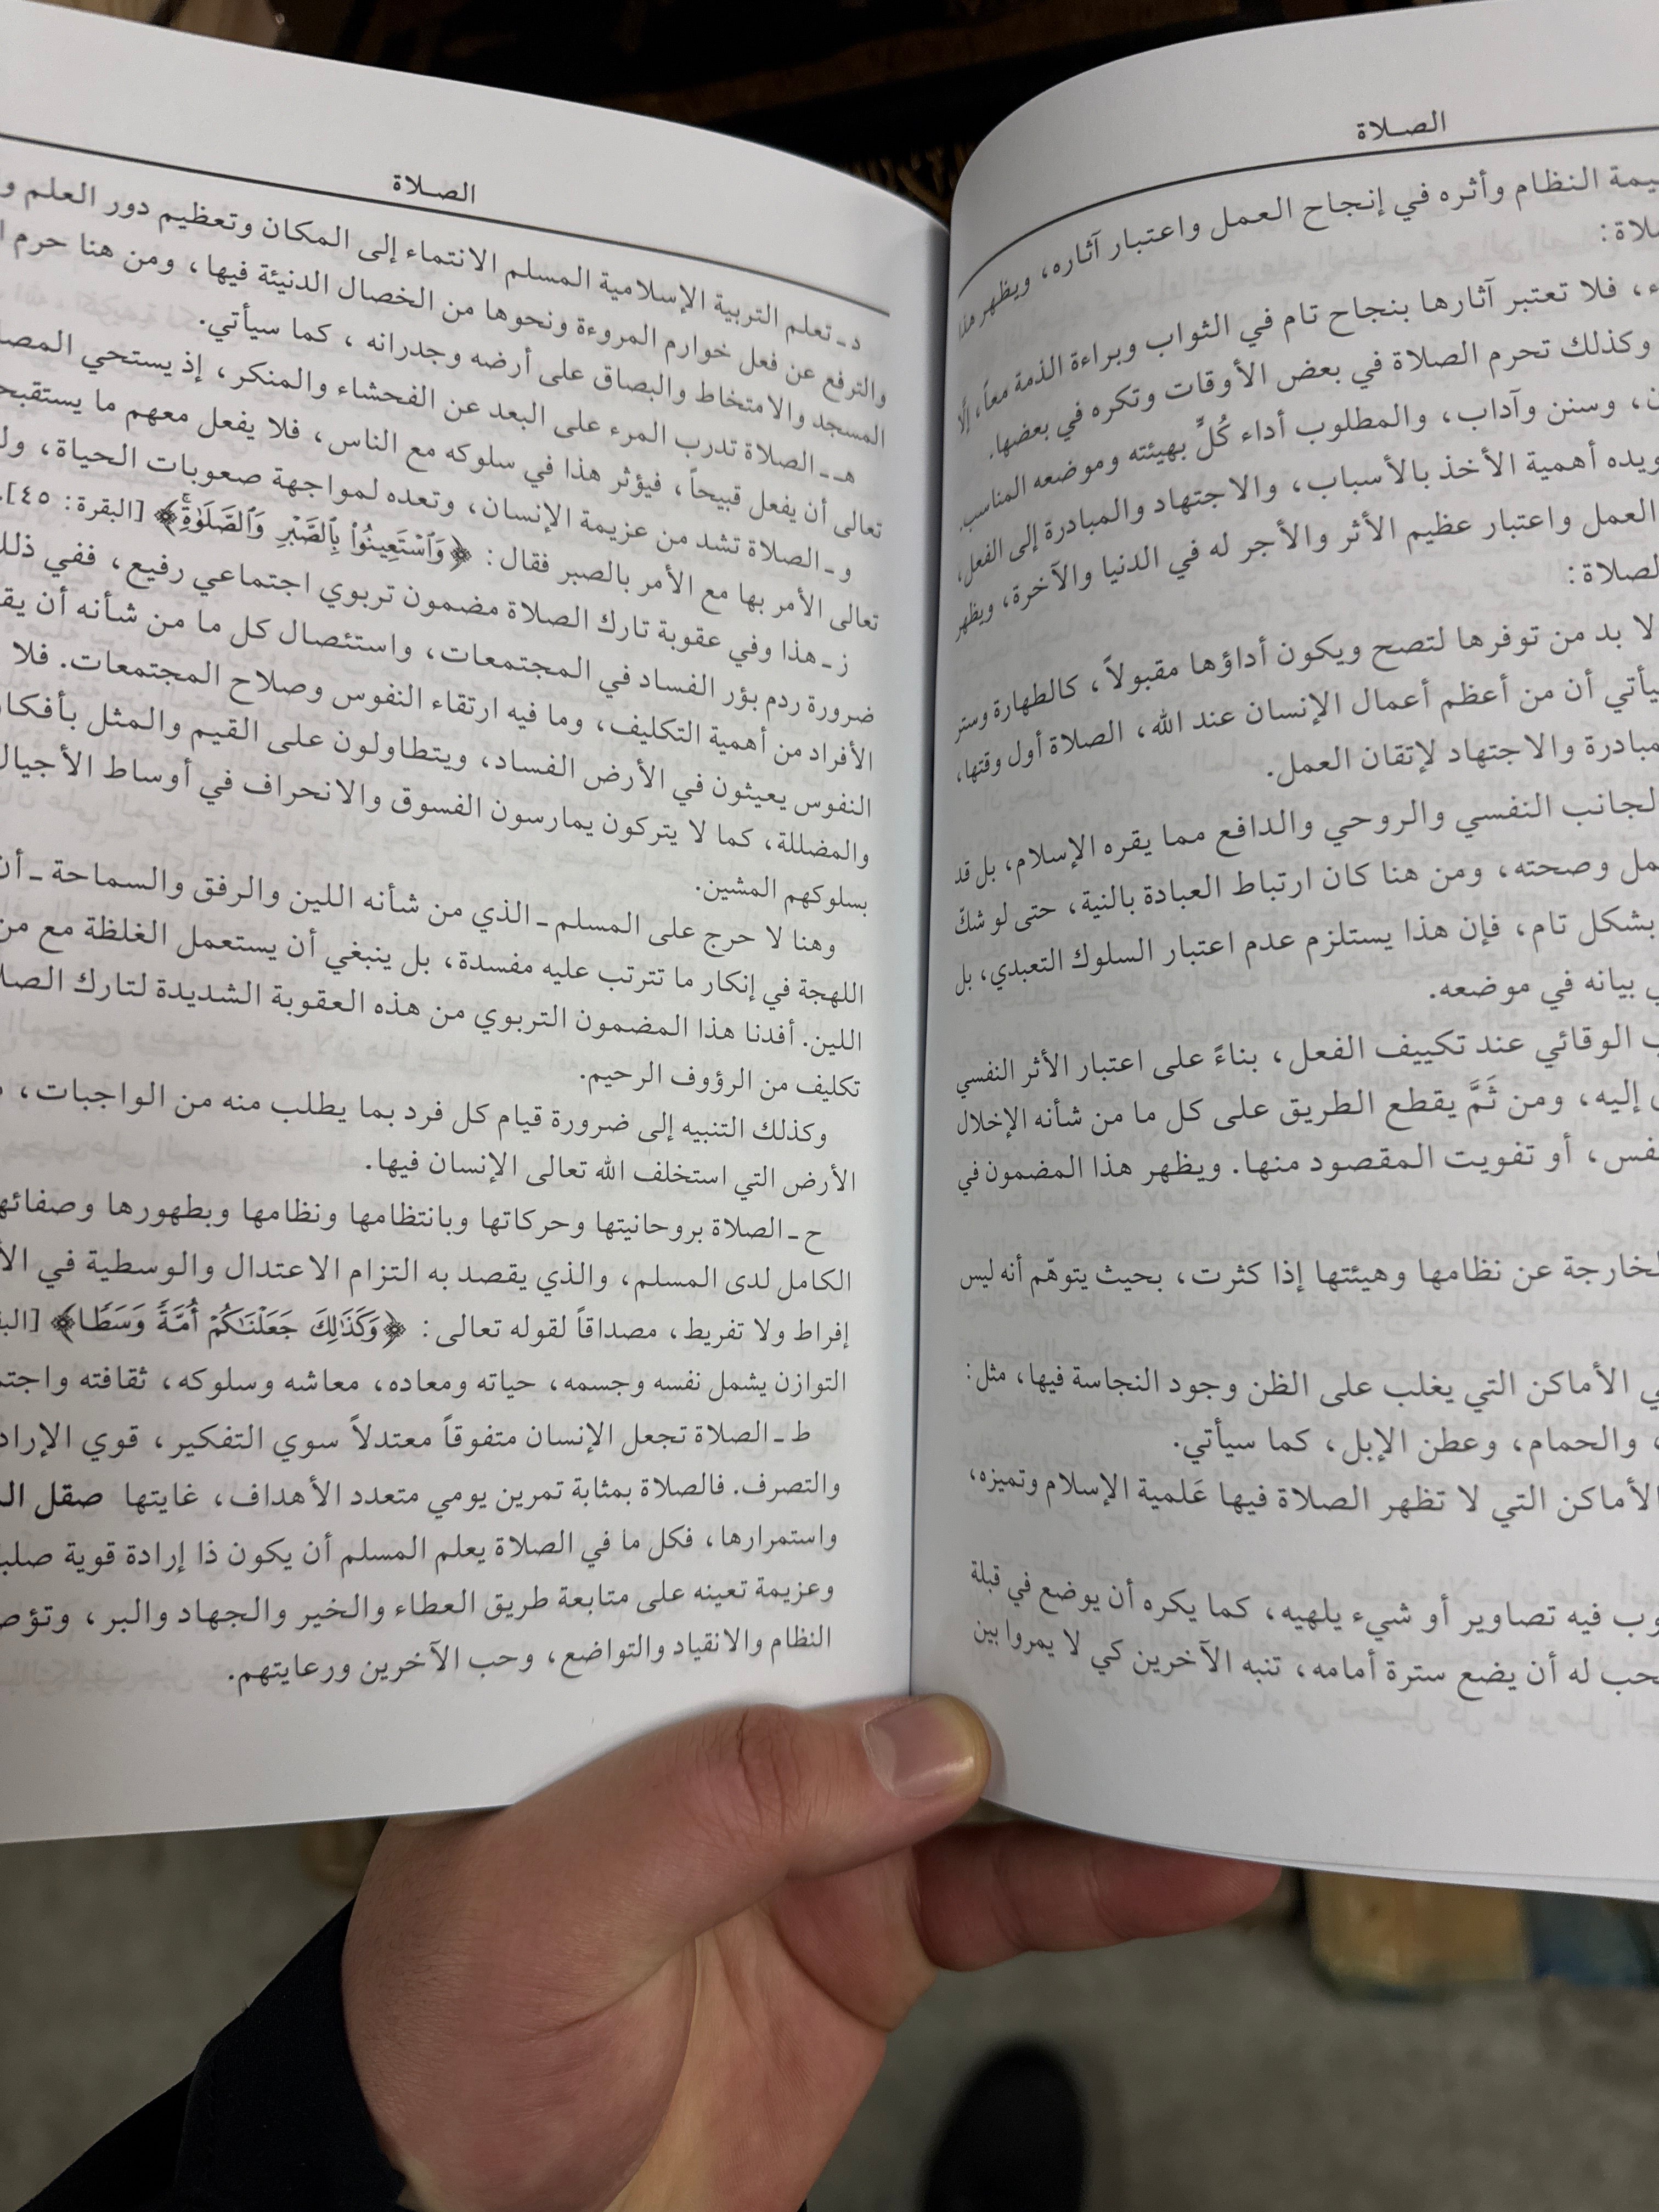 الصـلاة
يمة النظام وأثره في إنجاح العمل واعتبار آثاره، ويظهر هذا
لاة:
ء، فلا تعتبر آثارها بنجاح تام في الثواب وبراءة الذمة معاً، إلَّا
وكذلك تحرم الصلاة في بعض الأوقات وتكره في بعضها.
ن، وسنن وآداب، والمطلوب أداء كُلٍّ بهيئته وموضعه المناسب.
ويده أهمية الأخذ بالأسباب، والاجتهاد والمبادرة إلى الفعل،
العمل واعتبار عظيم الأثر والأجر له في الدنيا والآخرة، ويظهر
لصلاة:
لا بد من توفرها لتصح ويكون أداؤها مقبولاً، كالطهارة وستر
يأتي أن من أعظم أعمال الإنسان عند الله، الصلاة أول وقتها،
مبادرة والاجتهاد لإتقان العمل.
لجانب النفسي والروحي والدافع مما يقره الإسلام، بل قد
مل وصحته، ومن هنا كان ارتباط العبادة بالنية، حتى لو شكّ
بشكل تام، فإن هذا يستلزم عدم اعتبار السلوك التعبدي، بل
ي بيانه في موضعه.
ب الوقائي عند تكييف الفعل، بناءً على اعتبار الأثر النفسي
إليه، ومن ثَمَّ يقطع الطريق على كل ما من شأنه الإخلال
نفس، أو تفويت المقصود منها. ويظهر هذا المضمون في
لخارجة عن نظامها وهيئتها إذا كثرت، بحيث يتوهّم أنه ليس
ي الأماكن التي يغلب على الظن وجود النجاسة فيها، مثل:
، والحمام، وعطن الإبل، كما سيأتي.
الأماكن التي لا تظهر الصلاة فيها عَلمية الإسلام وتميزه،
وب فيه تصاوير أو شيء يلهيه، كما يكره أن يوضع في قبلة
حب له أن يضع سترة أمامه، تنبه الآخرين كي لا يمروا بين
الصـلاة
د ـ تعلم التربية الإسلامية المسلم الانتماء إلى المكان وتعظيم دور العلم و
والترفع عن فعل خوارم المروءة ونحوها من الخصال الدنيئة فيها، ومن هنا حرم
المسجد والامتخاط والبصاق على أرضه وجدرانه، كما سيأتي.
هـ ـ الصلاة تدرب المرء على البعد عن الفحشاء والمنكر، إذ يستحي المصل
تعالى أن يفعل قبيحاً، فيؤثر هذا في سلوكه مع الناس، فلا يفعل معهم ما يستقبح
و ـ الصلاة تشد من عزيمة الإنسان، وتعده لمواجهة صعوبات الحياة، ول
تعالى الأمر بها مع الأمر بالصبر فقال: ﴿وَٱسْتَعِينُوا۟ بِٱلصَّبْرِ وَٱلصَّلَوٰةِۚ﴾ [البقرة: ٤٥].
ز ـ هذا وفي عقوبة تارك الصلاة مضمون تربوي اجتماعي رفيع، ففي ذلك
ضرورة ردم بؤر الفساد في المجتمعات، واستئصال كل ما من شأنه أن يق
الأفراد من أهمية التكليف، وما فيه ارتقاء النفوس وصلاح المجتمعات. فلا
النفوس يعيثون في الأرض الفساد، ويتطاولون على القيم والمثل بأفكا
والمضللة، كما لا يتركون يمارسون الفسوق والانحراف في أوساط الأجيال
بسلوكهم المشين.
وهنا لا حرج على المسلم ـ الذي من شأنه اللين والرفق والسماحة ـ أن
اللهجة في إنكار ما تترتب عليه مفسدة، بل ينبغي أن يستعمل الغلظة مع من
اللين. أفدنا هذا المضمون التربوي من هذه العقوبة الشديدة لتارك الصلا
تكليف من الرؤوف الرحيم.
وكذلك التنبيه إلى ضرورة قيام كل فرد بما يطلب منه من الواجبات،
الأرض التي استخلف الله تعالى الإنسان فيها.
ح ـ الصلاة بروحانيتها وحركاتها وبانتظامها ونظامها وبطهورها وصفائه
الكامل لدى المسلم، والذي يقصد به التزام الاعتدال والوسطية في الأ
إفراط ولا تفريط، مصداقاً لقوله تعالى: ﴿وَكَذَٰلِكَ جَعَلْنَٰكُمْ أُمَّةً وَسَطًا﴾ [الب
التوازن يشمل نفسه وجسمه، حياته ومعاده، معاشه وسلوكه، ثقافته واجتم
ط ـ الصلاة تجعل الإنسان متفوقاً معتدلاً سوي التفكير، قوي الإراد
والتصرف. فالصلاة بمثابة تمرين يومي متعدد الأهداف، غايتها صقل ال
واستمرارها، فكل ما في الصلاة يعلم المسلم أن يكون ذا إرادة قوية صلب
وعزيمة تعينه على متابعة طريق العطاء والخير والجهاد والبر، وتؤص
النظام والانقياد والتواضع، وحب الآخرين ورعايتهم.